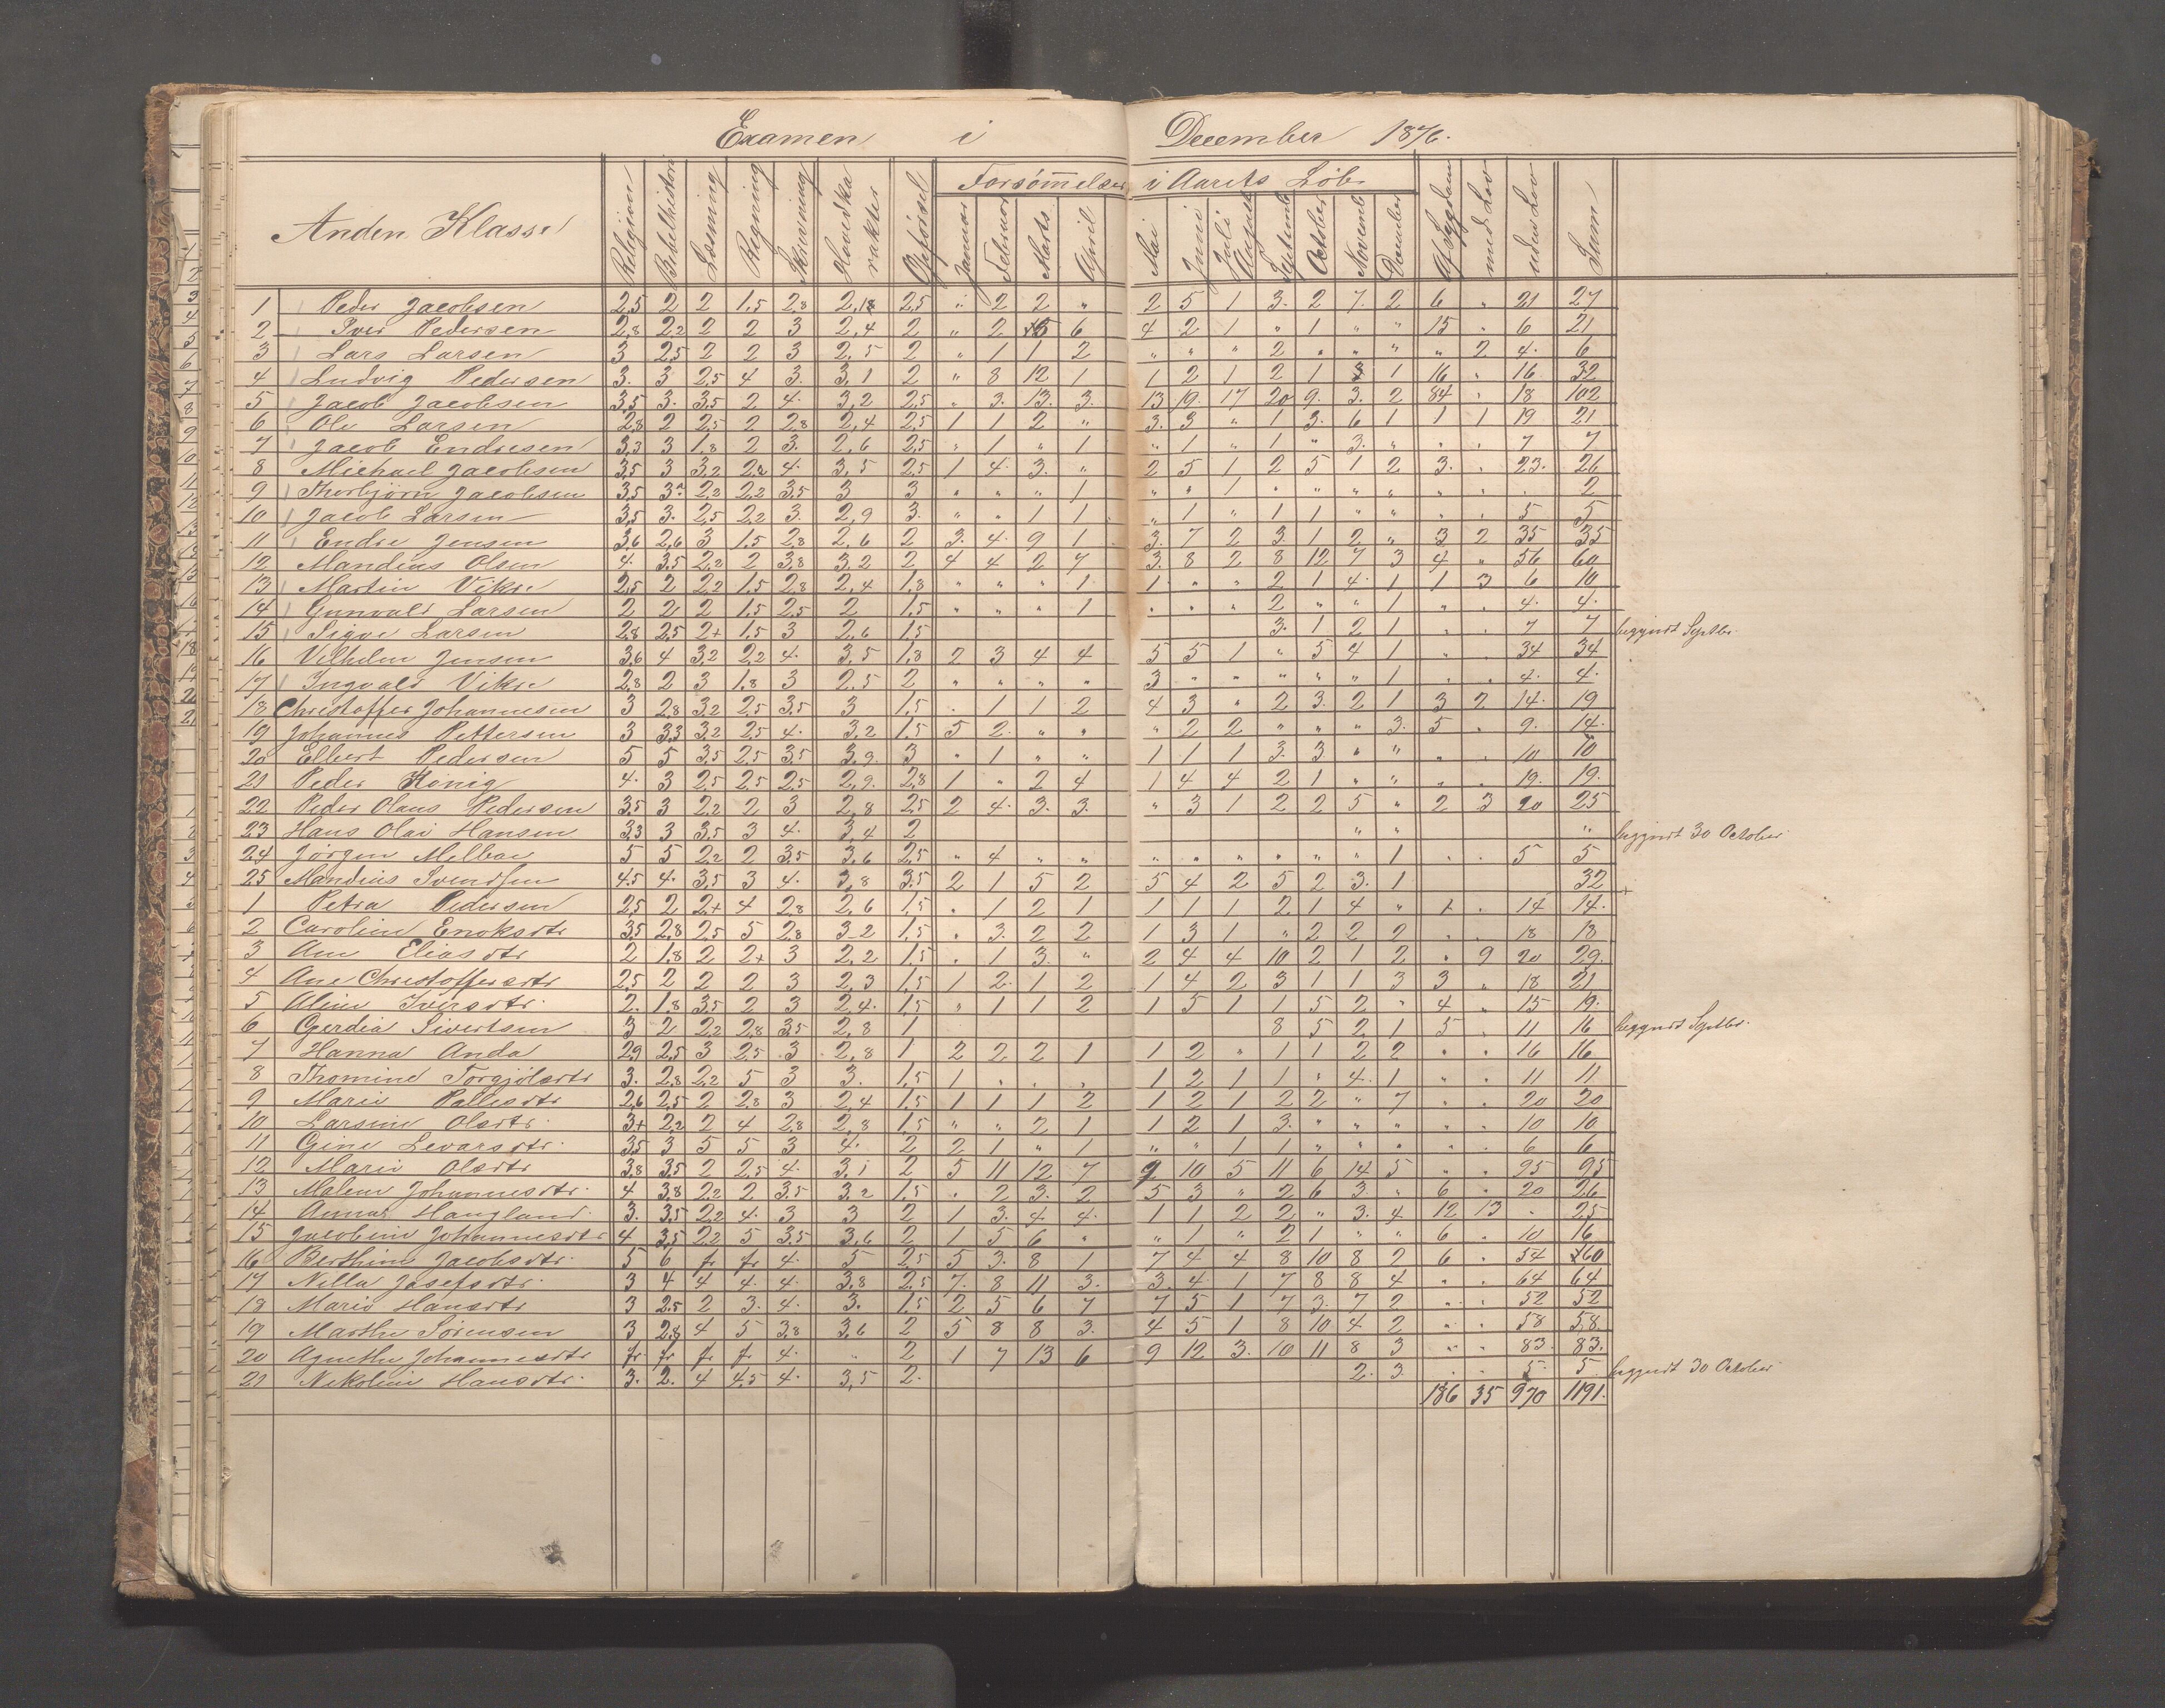 Examen i December 1876.
Forsømmelser i Aarets Løb
Anden Klasse Religion Bibelhistorie Læsning Regning Skrivning Hovedkarakter Opførsel Januar Februar Marts April Mai Juni Juli August Septemb October Novemb December Af Sygdom med Lov uden Lov Sum
1 Peder Jacobsen 2,5 2 2 1.5 2,8 2,18 2,5 " 2 2 " 2 5 1 3. 2 7. 2 6 " 21 27
2 Iver Pedersen 2,8 2,2 2 2 3 2,4 2 " 2 5 6 4 2 1 " 1 " " 15 " 6 21
3 Lars Larsen 3 2,5 2 2 3 2,5 2 " 1 1 2 " " " 2 " " " " 2 4. 6
4 Ludvig Pedersen 3. 3 2,5 4 3. 3,1 2 " 8 12 1 1 2 1 2 1 1 16 " 16 32
5 Jacob Jacobsen 3,5 3. 3,5 2 4. 3,2 2,5 " 3. 13. 3. 13 19. 17 20 9. 3. 2 84 . 18 102
6 Ole Larsen 2,8 2 2,5 2 2,8 2,4 2,5 1 1 2 " 3. 3 " 1 3. 6 1 1 1 19 21
7 Jacob Endresen 3,3 3 1.8 2 3. 2,6 2,5 " 1 " 1 " 1 " 1 " 3. " " . 7 7
8 Michael Jacobsen 3,5 3 3,2 2,2 4. 3,5 2,5 1 4. 3. " 2 5 1 2 5 1 2 3. . 23. 26
9 Thorbjørn Jacobsen 3,5 3 2,2 2,2 3,5 3 3 " " " 1 " " 1 " " " " " . . 2
10 Jacob Larsen 3,5 3. 2,5 2,2 3. 2,9 3. " " 1 1 " 1 " 1 1 " " " . 5 5
11 Endre Jensen 3,6 2,6 3 1.5 2,8 2,6 2 3. 4. 9 1 3. 7 2 3. 1 2 " 3 2 35 35
12 Mandius Olsen 4. 3,5 2,2 2 3,8 3,2 2 4 4 2 7 3. 8 2 8 12 7 3 4 " 56 60
13 Martin Vikse 2,5 2 2,2 1.5 2,8 2,4 1,8 " " " 1 1 " " 2 1 4. 1 1 3 6 10
14 Gunvald Larsen 2 2 2 1.5 2,5 2 1,5 " " " 1 " " " 2 " " 1 " . 4. 4.
15 Sigve Larsen 2,8 2,5 2+ 1.5 3 2,6 1,5 3. 1 2 1 . . 7 7 begyndt Septbr.
16 Vilhelm Jensen 3,6 4 3,2 2,2 4. 3,5 1,8 2 3 4 4 5 5 1 " 5 4 1 " . 34 34
17 Ingvald Vikse 2,8 2 3 1.8 3 2,5 2 " " " " 3 " " " " " 1 . . 4. 4.
18 Christoffer Johannesen 3 2,8 3,2 2,5 3,5 3 1,5 . 1 1 2 4 3 " 2 3. 2 1 3 2 14. 19
19 Johannes Pettersen 3 3,3 3,2 2,5 4. 3,2 1,5 5 2. " " " 2 2 " " " 3. 5 . 9. 14.
20 Elbert Pedersen 5 5 3,5 2,5 3,5 3,9. 3 " 1 " " 1 1 1 3. 3 " " " . 10 10
21 Peder König 4. 3 2,5 2,5 2,5 2,9. 2,8 1 " 2 4 1 4 4 2 1 " " . . 19. 19.
22 Peder Olaus Pedersen 3,5 3 2,2 2 3 2,8 2,5 2 4. 3. 3. " 3 1 2 2 5 " 2 3 20 25
23 Hans Olai Hansen 3,3 3 3,5 3 4. 3,4 2 " " " begyndt 30 October
24 Jørgen Melbae 5 5 2,2 2 3,5 3,6 2,5 " 4 " " " " " " " " 1 . . 5 5
25 Mandius Svendsen 4.5 4. 3,5 3 4. 3,8 3.5 2 1 5 2 5 4 2 5 2 3. 1 32
1 Petra Pedersen 2,5 2 2+ 4 2,8 2,6 1,5 . 1 2 1 1 1 1 2 1 4 " . 14 14.
2 Caroline Enoksdtr 3,5 2,8 2,5 5 2,8 3-2 1,5 . 3. 2 2 1 3 1 " 2 2 2 . . 18 18
3 Ane Eliasdtr 2 1.8 2 2+ 3 2,2 1,5 . 1 3. " 2 4 4 10 2 1 2 . 9 20 29.
4 Ane Christoffersdtr 2,5 2 2 2 3 2,3 1,5 1 2. 1 2 1 4 2 3 1 1 3 3 " 18 21
5 Aline Iversdtr. 2. 1.8 3,5 2 3 2,4. 1,5 " 1 1 2 1 5 1 1 5 2 " 4 " 15 19.
6 Gerdia Sivertsen 3 2 2,2 2,8 3,5 2,8 1 8 5 2 1 5 . 11 16 begyndt Septbr.
7 Hanna Anda 2,9 2,5 3 2,5 3 2,8 1 2 2 2 1 1 2 " 1 1 2 2 " " 16 16
8 Thomine Torgjølsdtr 3. 2,8 2,2 5 3 3. 1,5 1 . . . 1 2 1 1 " 4. 1 " . 11 11
9 Marie Pallesdtr 2,6 2,5 2 2,8 3 2,4 1,5 1 1 1 2 1 2 1 2 2 " 7 " . 20 20
10 Larsine Olsdtr. 3+ 2,2 2 4 2,8 2,8 1,5 " " 2 1 1 2 1 3. " " " " . 10 10
11 Gine Levarsdtr. 3,5 3 5 5 3 4. 2 2 1 " 1 " " 1 1 " " " " . 6 6
12 Marie Olsdtr 3,8 3,5 2 2,5 4. 3,1 2 5 11 12 7 9 10 5 11 6 14 5 " " 95 95
13 Malene Johannesdtr. 4 3,8 2,2 2 3,5 3,2 1,5 . 2 3. 2 5 3 " 2 6 3. " 6 " 20 26
14 Anna Haugland. 3. 3,5 2,2 4. 3 3 2 1 3. 4 4. 1 1 2 2 " 3. 4 12 13 . 25
15 Jacobine Johannesdtr 4 3,5 2,2 5 3,5 3,6 2 1 5 6 " " 1 " 2 1 " " 6 . 10 16
16 Berthine Jacobsdtr. 5 6 fr fr 4. 5 2,5 5 3. 8 1 7 4 4 8 10 8 2 6 . 54 60
17 Nilla Josefsdtr. 3 4 4 4. 4. 3,8 2,5 7. 8 11 3. 3. 4 1 7 8 8 4 " . 64 64
18 Marie Hansdtr 3 2,5 2 3. 4. 3. 1,5 2 5 6 7 7 5 1 7 3. 7 2 " . 52 52
19 Marthe Sørensen 3 2,8 4 5 3,8 3,6 2 5 8 8 3. 4 5 1 8 10 4 2 " . 58 58.
20 Agnethe Johannesdtr fr. fr fr fr 4. " 2 1 7 13 6 9 12 3. 10 11 8 3 " . 83. 83.
21 Nikoline Hansdtr. 3. 2. 4 4,5 4. 3,5 2. 2. 3. . . 5. 5. begyndt 30 October
186 35 970 1191.